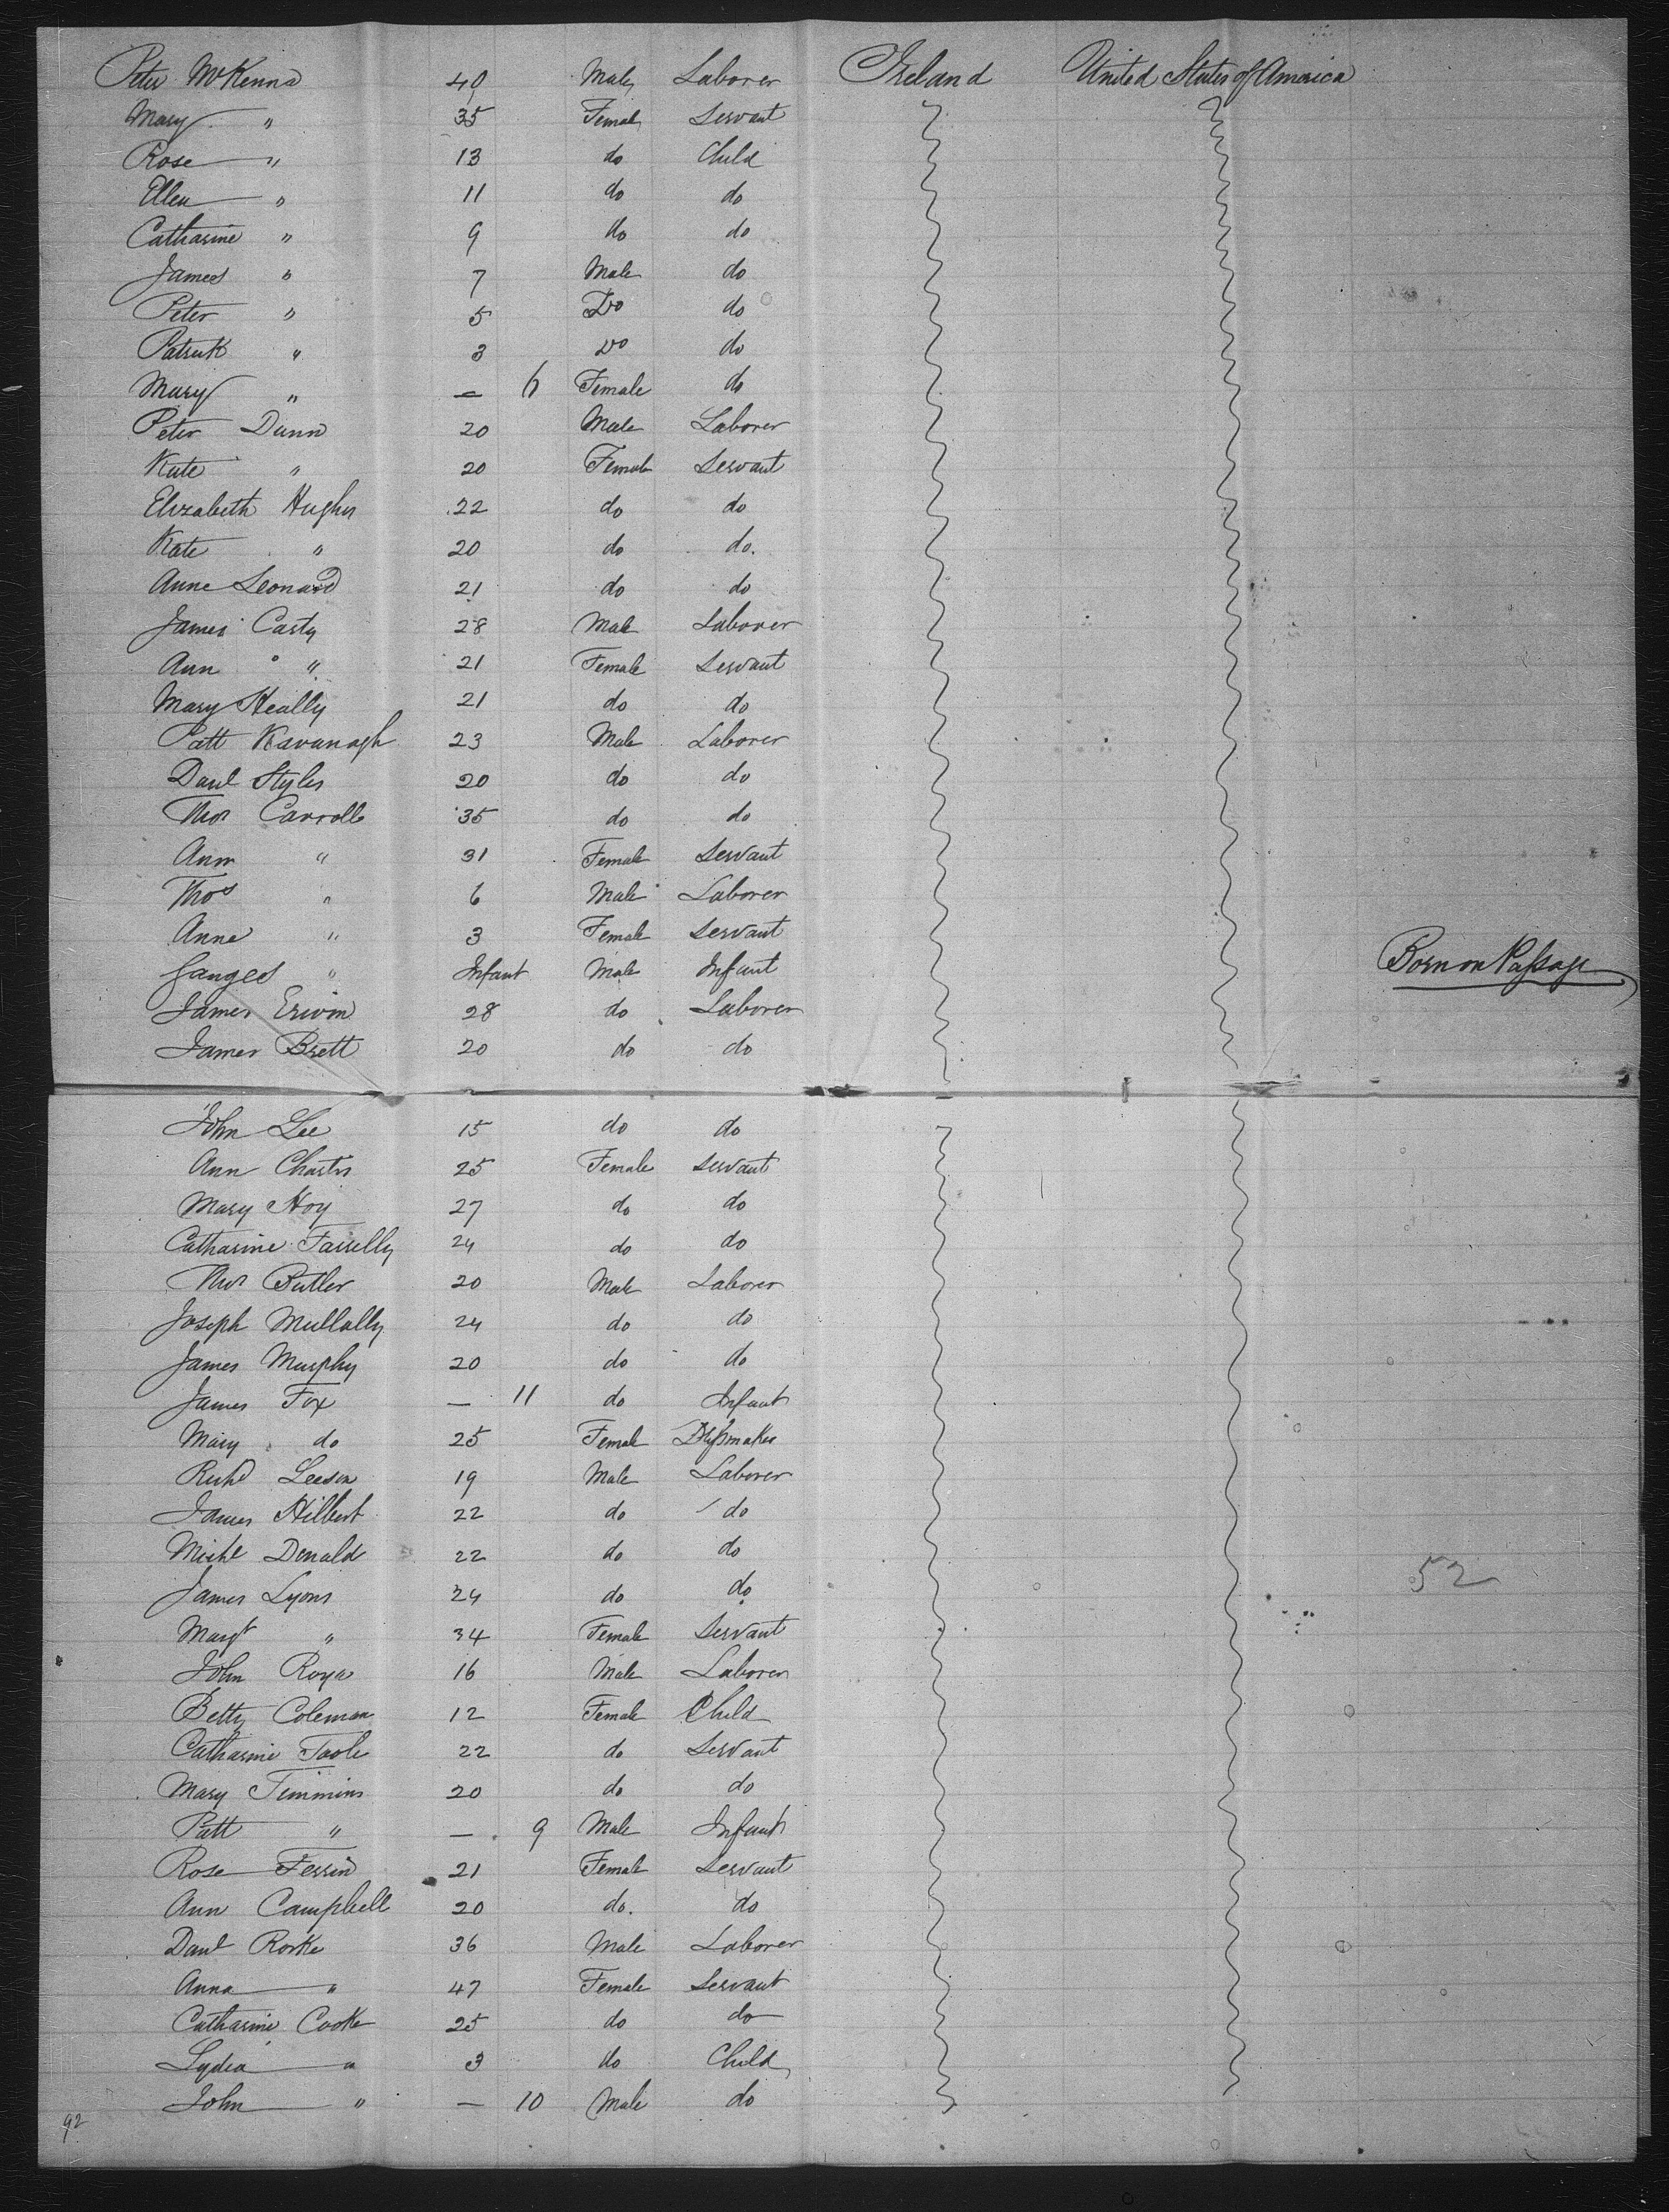 Peter McKenna 40 Male Laborer Ireland United States of America
Mary " 35 Female Servant
Rose " 13 do Child
Ellen " 11 do do
Catharine " 9 do do
James " 7 Male do
Peter " 5 Do do
Patrick " 3 Do do
Mary " — 6 Female do
Peter Dunn 20 Male Laborer
Kate " 20 Female Servant
Elizabeth Hughes 22 do do
Kate " 20 do do.
Anne Leonard 21 do do
James Casty 28 Male Laborer
Ann " 21 Female Servant
Mary Heally 21 do do
Patt Kavanagh 23 Male Laborer
Danl Styles 20 do do
Thos Carroll 35 do do
Ann " 31 Female Servant
Thos " 6 Male Laborer
Anne " 3 Female Servant
Ganges " Infant Male Infant Born on Passage
James Erwin 28 do Laborer
James Brett 20 do do
John Lee 15 do do
Ann Charters 25 Female Servant
Mary Hoy 27 do do
Catharine Farrelly 24 do do
Thos Butler 20 Male Laborer
Joseph Mullally 24 do do
James Murphy 20 do do
James Fox — 11 do Infant
Mary do 25 Female Dressmaker
Richd Leeson 19 Male Laborer
James Hilbert 22 do do
Michl Donald 22 do do
James Lyons 24 do do
Margt " 34 Female Servant
John 16 Male Laborer
Betty Coleman 12 Female Child
Catharine Toole 22 do Servant
Mary Timmins 20 do do
Patt " — 9 Male Infant
Rose 21 Female Servant
Ann Campbell 20 do. do
Danl Rorke 36 Male Laborer
Anna " 47 Female Servant
Catharine Cooke 25 do do
Lydia " 3 do Child
John " — 10 Male do
52
92